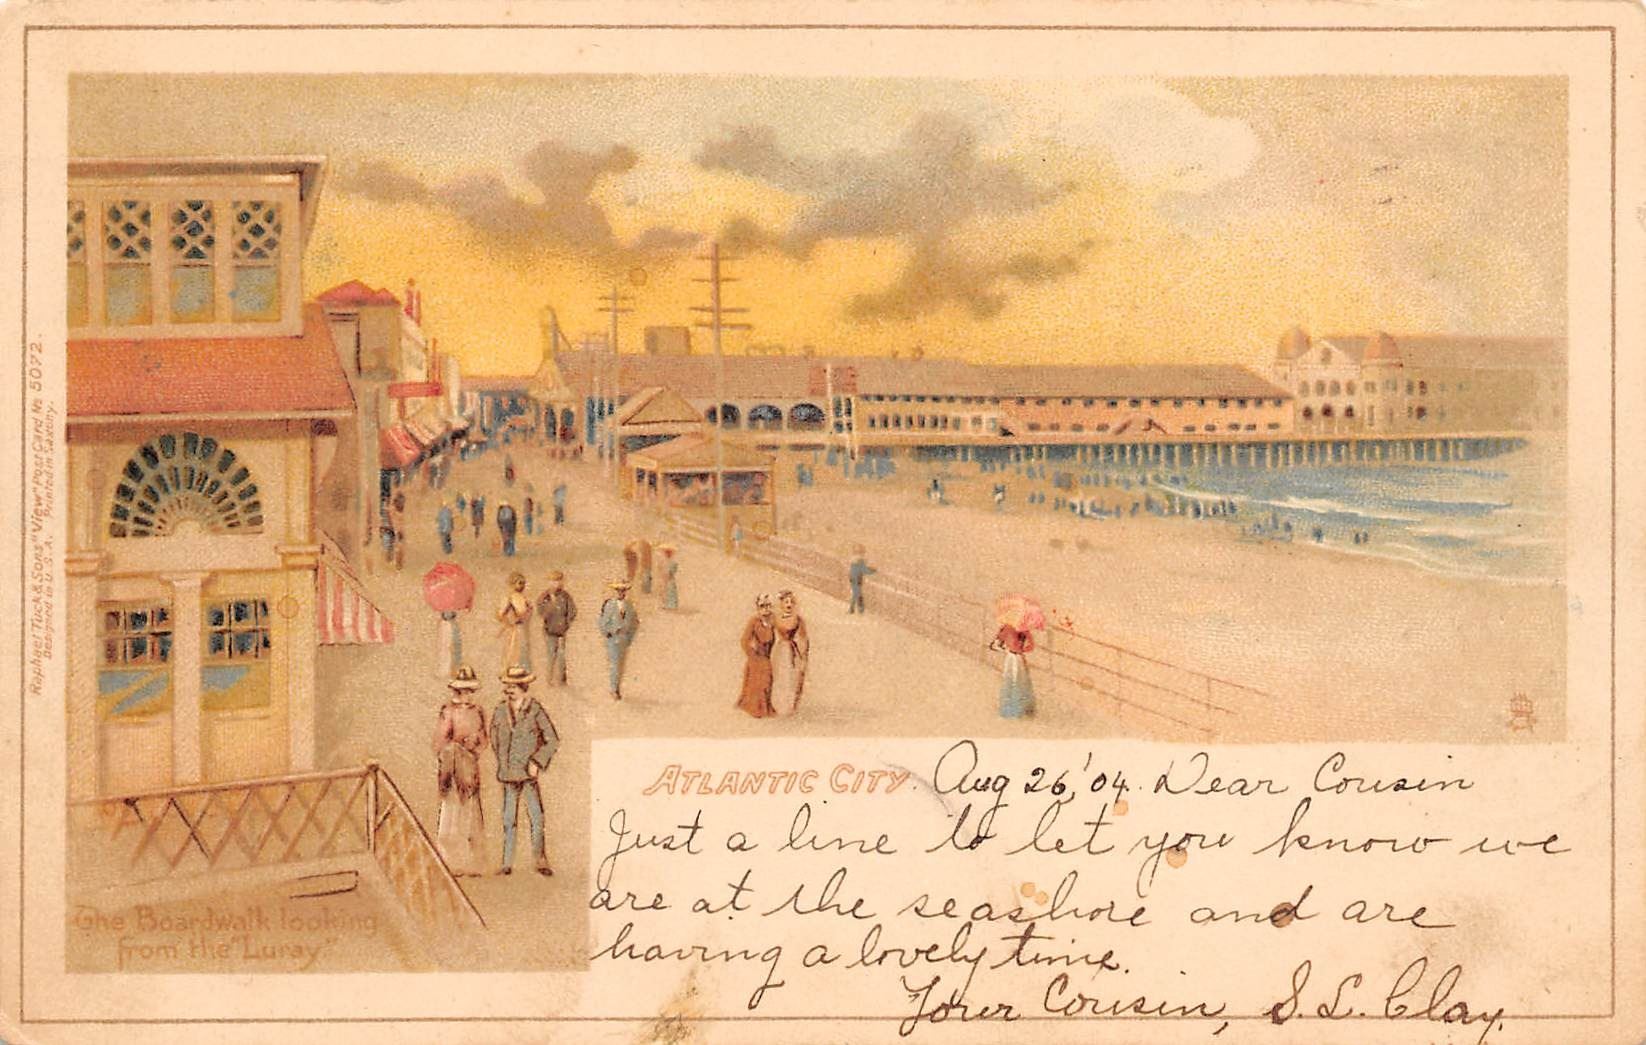 Raphael Tuck & Sons "View" Post Card No 5072.
Designed in U.S.A. Printed in Saxony.
The Boardwalk looking
from the "Luray"
ATLANTIC CITY. Aug 26, '04. Dear Cousin
Just a line to let you know we
are at the seashore and are
having a lovely time.
Your Cousin, S. L. Clay.